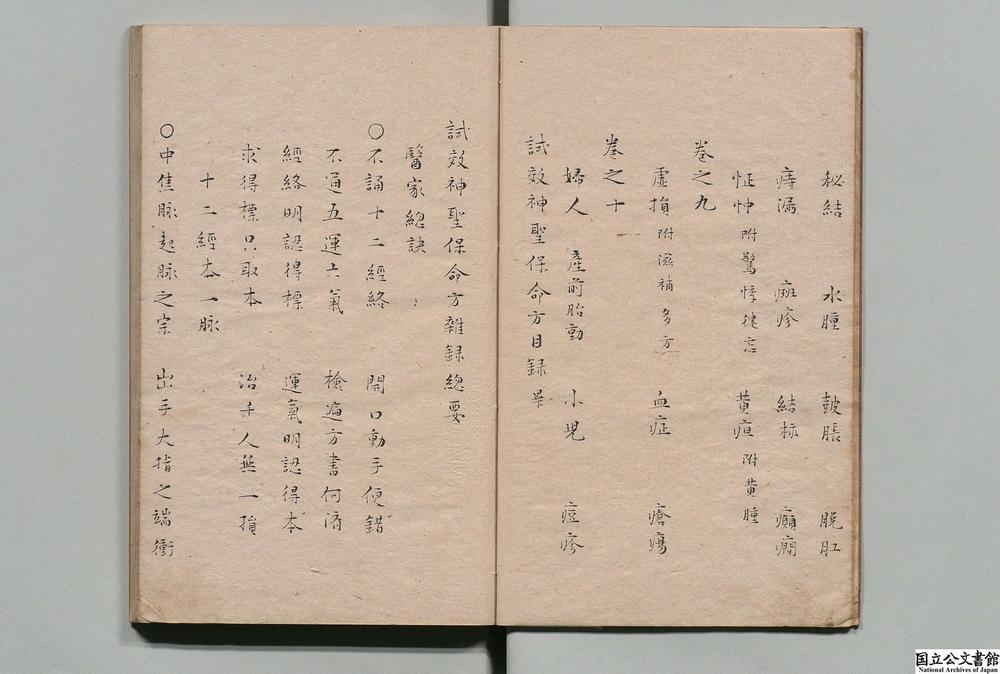 秘結 水腫 鼓脹 脫肛
痔漏 斑疹 結核 癲癇
怔忡附驚悸健忘 黄疸附黄腫
卷之九
虛損附滋補多方 血症 瘡瘍
卷之十
婦人 產前胎動 小兒 痘疹
試效神聖保命方目録畢
試效神聖保命方雜録總要
醫家總訣
○不誦十二經絡 開口動手便錯
不通五運六氣 檢遍方書何濟
經絡明認得標 運氣明認得本
求得標只取本 治千人無一損
十二經本一脉
○中焦脉起脉之宗 出手大指之端衝
国立公文書館
National Archives of Japan